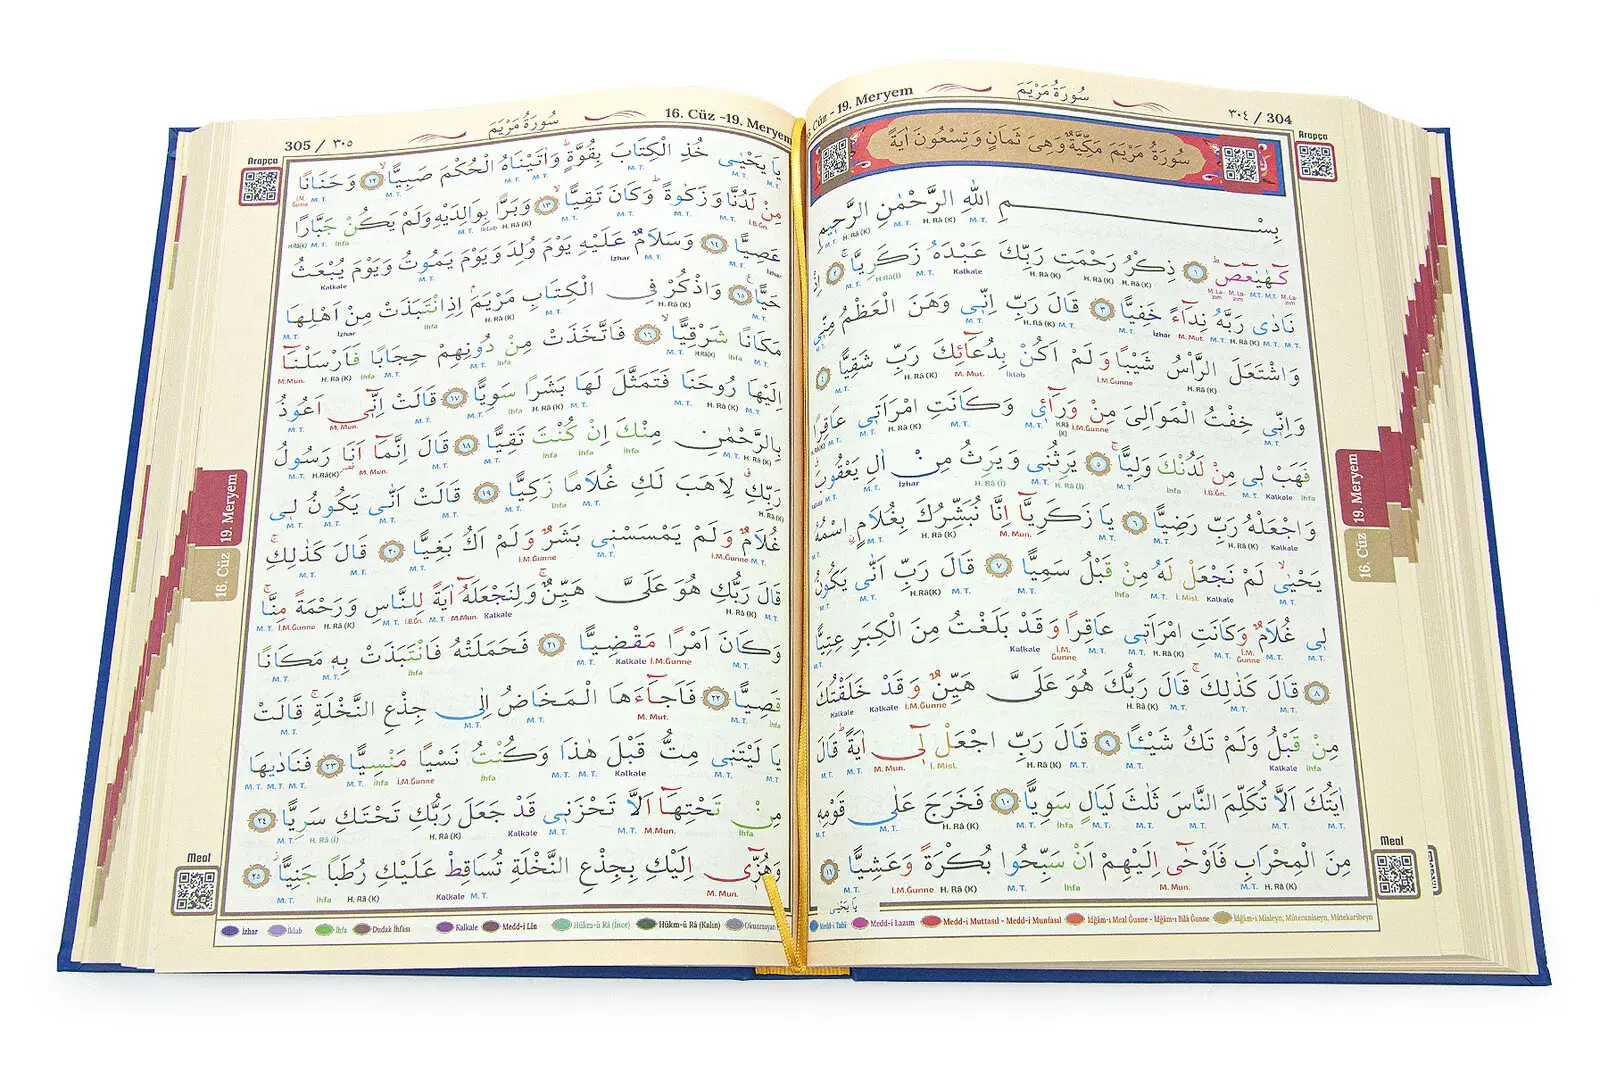 304 / ٣٠٤
سُورَةُ مَرْيَمَ
Cüz - 19. Meryem
Arapça
سُورَةُ مَرْيَمَ مَكِّيَّةٌ وَهِىَ ثَمَانٍ وَتِسْعُونَ اٰيَةً
بِسْـــمِ اللّٰهِ الرَّحْمٰنِ الرَّحٖيمِ
كٓهٰيٰعٓصٓ ﴿١﴾ ذِكْرُ رَحْمَتِ رَبِّكَ عَبْدَهُ زَكَرِيَّا ﴿٢﴾ اِذْ
نَادٰى رَبَّهُ نِدَٓاءً خَفِيًّا ﴿٣﴾ قَالَ رَبِّ اِنّٖى وَهَنَ الْعَظْمُ مِنّٖى
وَاشْتَعَلَ الرَّاْسُ شَيْبًا وَلَمْ اَكُنْ بِدُعَٓائِكَ رَبِّ شَقِيًّا ﴿٤﴾
وَاِنّٖى خِفْتُ الْمَوَالِىَ مِنْ وَرَٓائٖى وَكَانَتِ امْرَاَتٖى عَاقِرًا
فَهَبْ لٖى مِنْ لَدُنْكَ وَلِيًّا ﴿٥﴾ يَرِثُنٖى وَيَرِثُ مِنْ اٰلِ يَعْقُوبَ
وَاجْعَلْهُ رَبِّ رَضِيًّا ﴿٦﴾ يَا زَكَرِيَّٓا اِنَّا نُبَشِّرُكَ بِغُلَامٍ اسْمُهُ
يَحْيٰى لَمْ نَجْعَلْ لَهُ مِنْ قَبْلُ سَمِيًّا ﴿٧﴾ قَالَ رَبِّ اَنّٰى يَكُونُ
لٖى غُلَامٌ وَكَانَتِ امْرَاَتٖى عَاقِرًا وَقَدْ بَلَغْتُ مِنَ الْكِبَرِ عِتِيًّا
﴿٨﴾ قَالَ كَذٰلِكَ قَالَ رَبُّكَ هُوَ عَلَىَّ هَيِّنٌ وَقَدْ خَلَقْتُكَ
مِنْ قَبْلُ وَلَمْ تَكُ شَيْـًٔا ﴿٩﴾ قَالَ رَبِّ اجْعَلْ لٖٓى اٰيَةً قَالَ
اٰيَتُكَ اَلَّا تُكَلِّمَ النَّاسَ ثَلٰثَ لَيَالٍ سَوِيًّا ﴿١٠﴾ فَخَرَجَ عَلٰى قَوْمِهٖ
مِنَ الْمِحْرَابِ فَاَوْحٰٓى اِلَيْهِمْ اَنْ سَبِّحُوا بُكْرَةً وَعَشِيًّا ﴿١١﴾
يَا يَحْيٰى
19. Meryem
16. Cüz
Meal
Medd-i Tabî Medd-i Lazım Medd-i Muttasıl - Medd-i Munfasıl İdğam-ı Meal Ğunne - İdğam-ı Bilâ Ğunne İdğam-ı Misleyn, Mütecaniseyn, Mütekaribeyn
16. Cüz -19. Meryem
سُورَةُ مَرْيَمَ
305 / ٣٠٥
Arapça
يَا يَحْيٰى خُذِ الْكِتَابَ بِقُوَّةٍ وَاٰتَيْنَاهُ الْحُكْمَ صَبِيًّا ﴿١٢﴾ وَحَنَانًا
مِنْ لَدُنَّا وَزَكٰوةً وَكَانَ تَقِيًّا ﴿١٣﴾ وَبَرًّا بِوَالِدَيْهِ وَلَمْ يَكُنْ جَبَّارًا
عَصِيًّا ﴿١٤﴾ وَسَلَامٌ عَلَيْهِ يَوْمَ وُلِدَ وَيَوْمَ يَمُوتُ وَيَوْمَ يُبْعَثُ
حَيًّا ﴿١٥﴾ وَاذْكُرْ فِى الْكِتَابِ مَرْيَمَ اِذِ انْتَبَذَتْ مِنْ اَهْلِهَا
مَكَانًا شَرْقِيًّا ﴿١٦﴾ فَاتَّخَذَتْ مِنْ دُونِهِمْ حِجَابًا فَاَرْسَلْنَٓا
اِلَيْهَا رُوحَنَا فَتَمَثَّلَ لَهَا بَشَرًا سَوِيًّا ﴿١٧﴾ قَالَتْ اِنّٖٓى اَعُوذُ
بِالرَّحْمٰنِ مِنْكَ اِنْ كُنْتَ تَقِيًّا ﴿١٨﴾ قَالَ اِنَّمَٓا اَنَا رَسُولُ
رَبِّكِ لِاَهَبَ لَكِ غُلَامًا زَكِيًّا ﴿١٩﴾ قَالَتْ اَنّٰى يَكُونُ لٖى
غُلَامٌ وَلَمْ يَمْسَسْنٖى بَشَرٌ وَلَمْ اَكُ بَغِيًّا ﴿٢٠﴾ قَالَ كَذٰلِكِ
قَالَ رَبُّكِ هُوَ عَلَىَّ هَيِّنٌ وَلِنَجْعَلَهُٓ اٰيَةً لِلنَّاسِ وَرَحْمَةً مِنَّا
وَكَانَ اَمْرًا مَقْضِيًّا ﴿٢١﴾ فَحَمَلَتْهُ فَانْتَبَذَتْ بِهٖ مَكَانًا
قَصِيًّا ﴿٢٢﴾ فَاَجَٓاءَهَا الْمَخَاضُ اِلٰى جِذْعِ النَّخْلَةِ قَالَتْ
يَا لَيْتَنٖى مِتُّ قَبْلَ هٰذَا وَكُنْتُ نَسْيًا مَنْسِيًّا ﴿٢٣﴾ فَنَادٰيهَا
مِنْ تَحْتِهَٓا اَلَّا تَحْزَنٖى قَدْ جَعَلَ رَبُّكِ تَحْتَكِ سَرِيًّا ﴿٢٤﴾
وَهُزّٖٓى اِلَيْكِ بِجِذْعِ النَّخْلَةِ تُسَاقِطْ عَلَيْكِ رُطَبًا جَنِيًّا ﴿٢٥﴾
19. Meryem
16. Cüz
Meal
İzhar İklab İhfa Dudak İhfası Kalkale Medd-i Lîn Hükm-ü Râ (İnce) Hükm-ü Râ (Kalın) Okunmayan